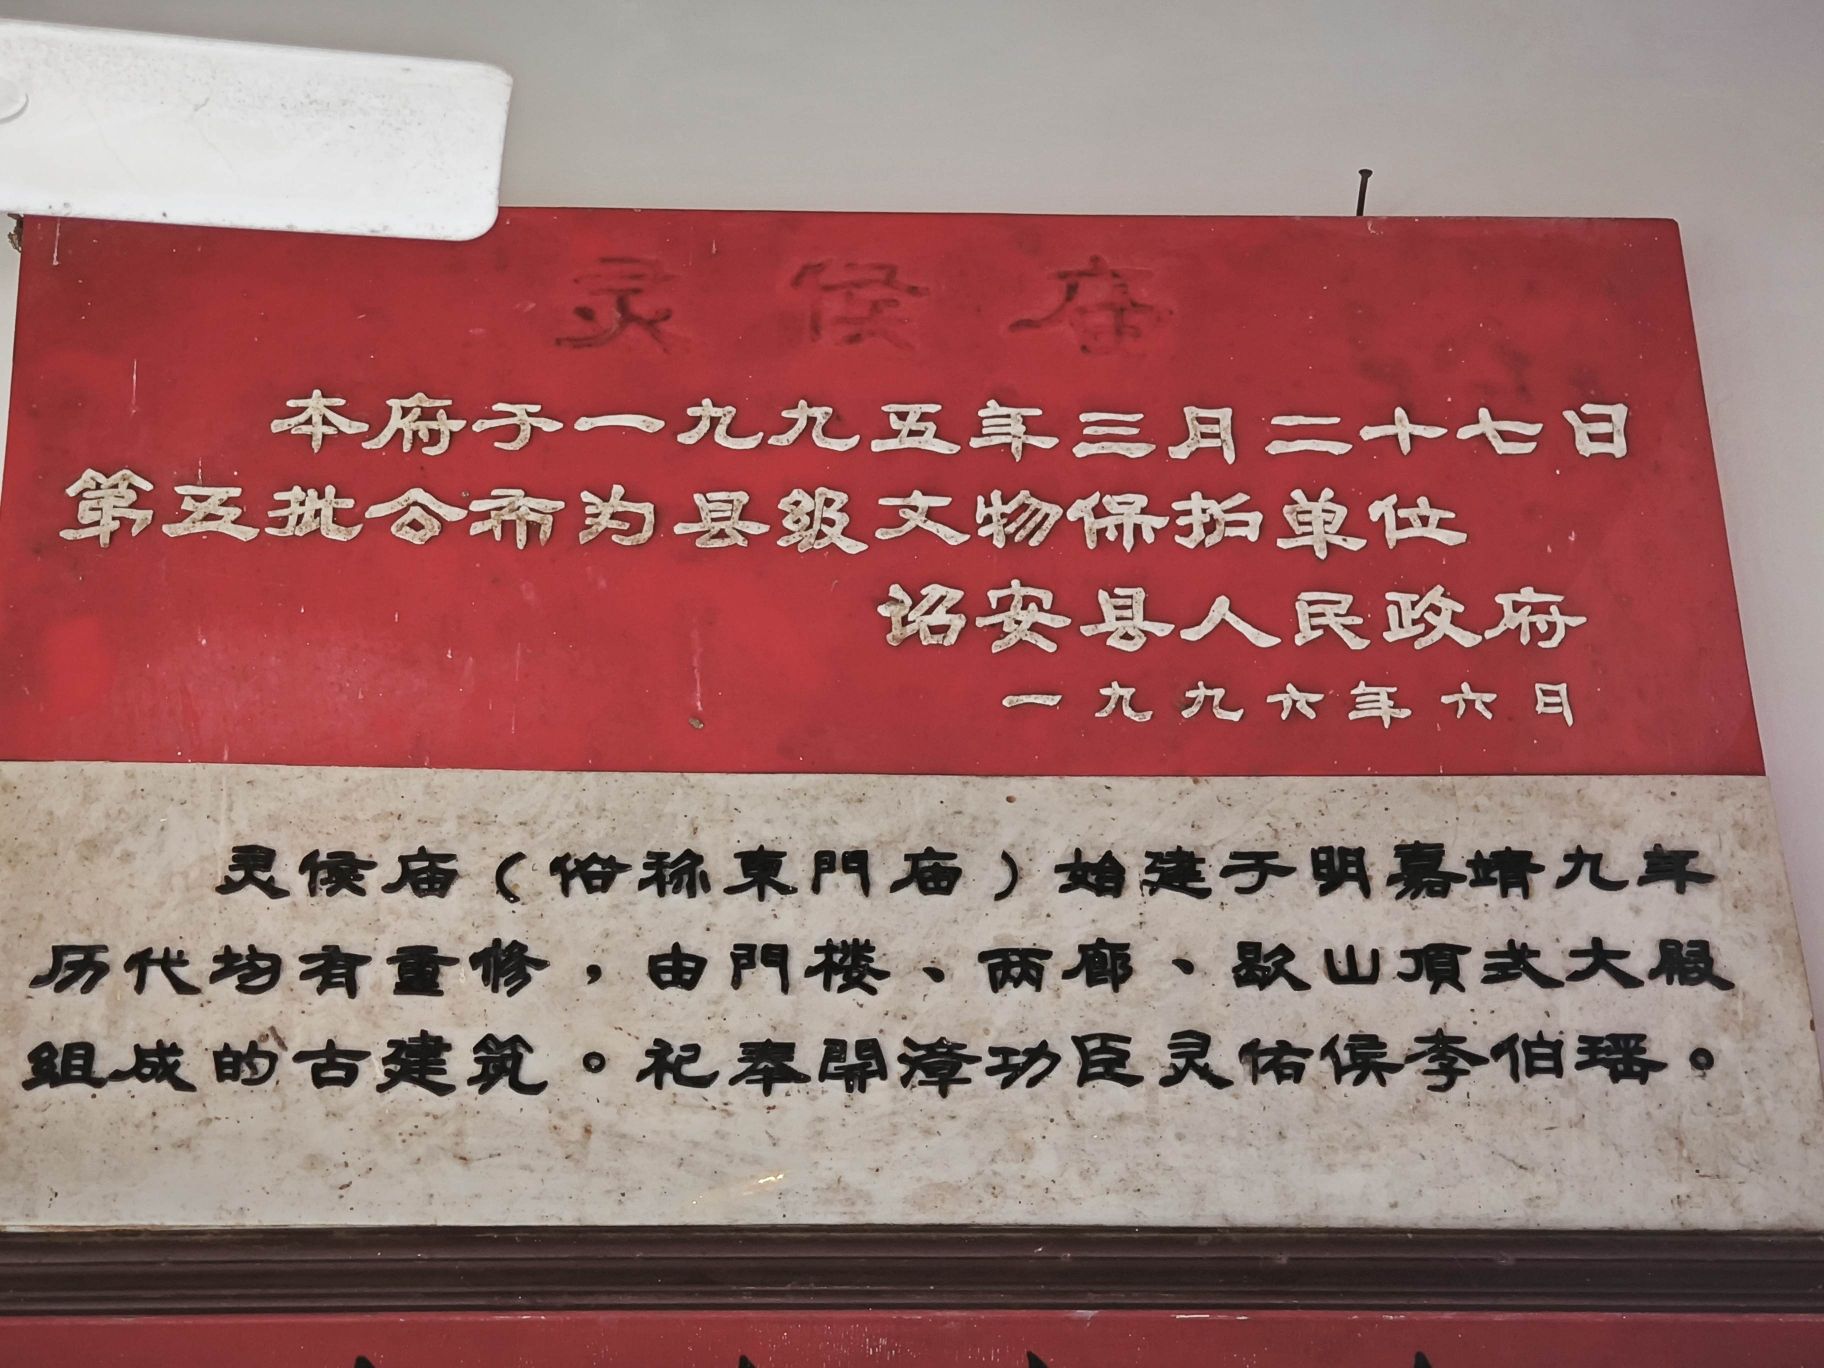 灵侯庙
本府于一九九五年三月二十七日
第五批公布为县级文物保护单位
诏安县人民政府
一九九六年六日
灵侯庙（俗称東門庙）始建于明嘉靖九年
历代均有重修，由門楼、两廊、歇山頂式大殿
组成的古建筑。祀奉開漳功臣灵佑侯李伯瑶。